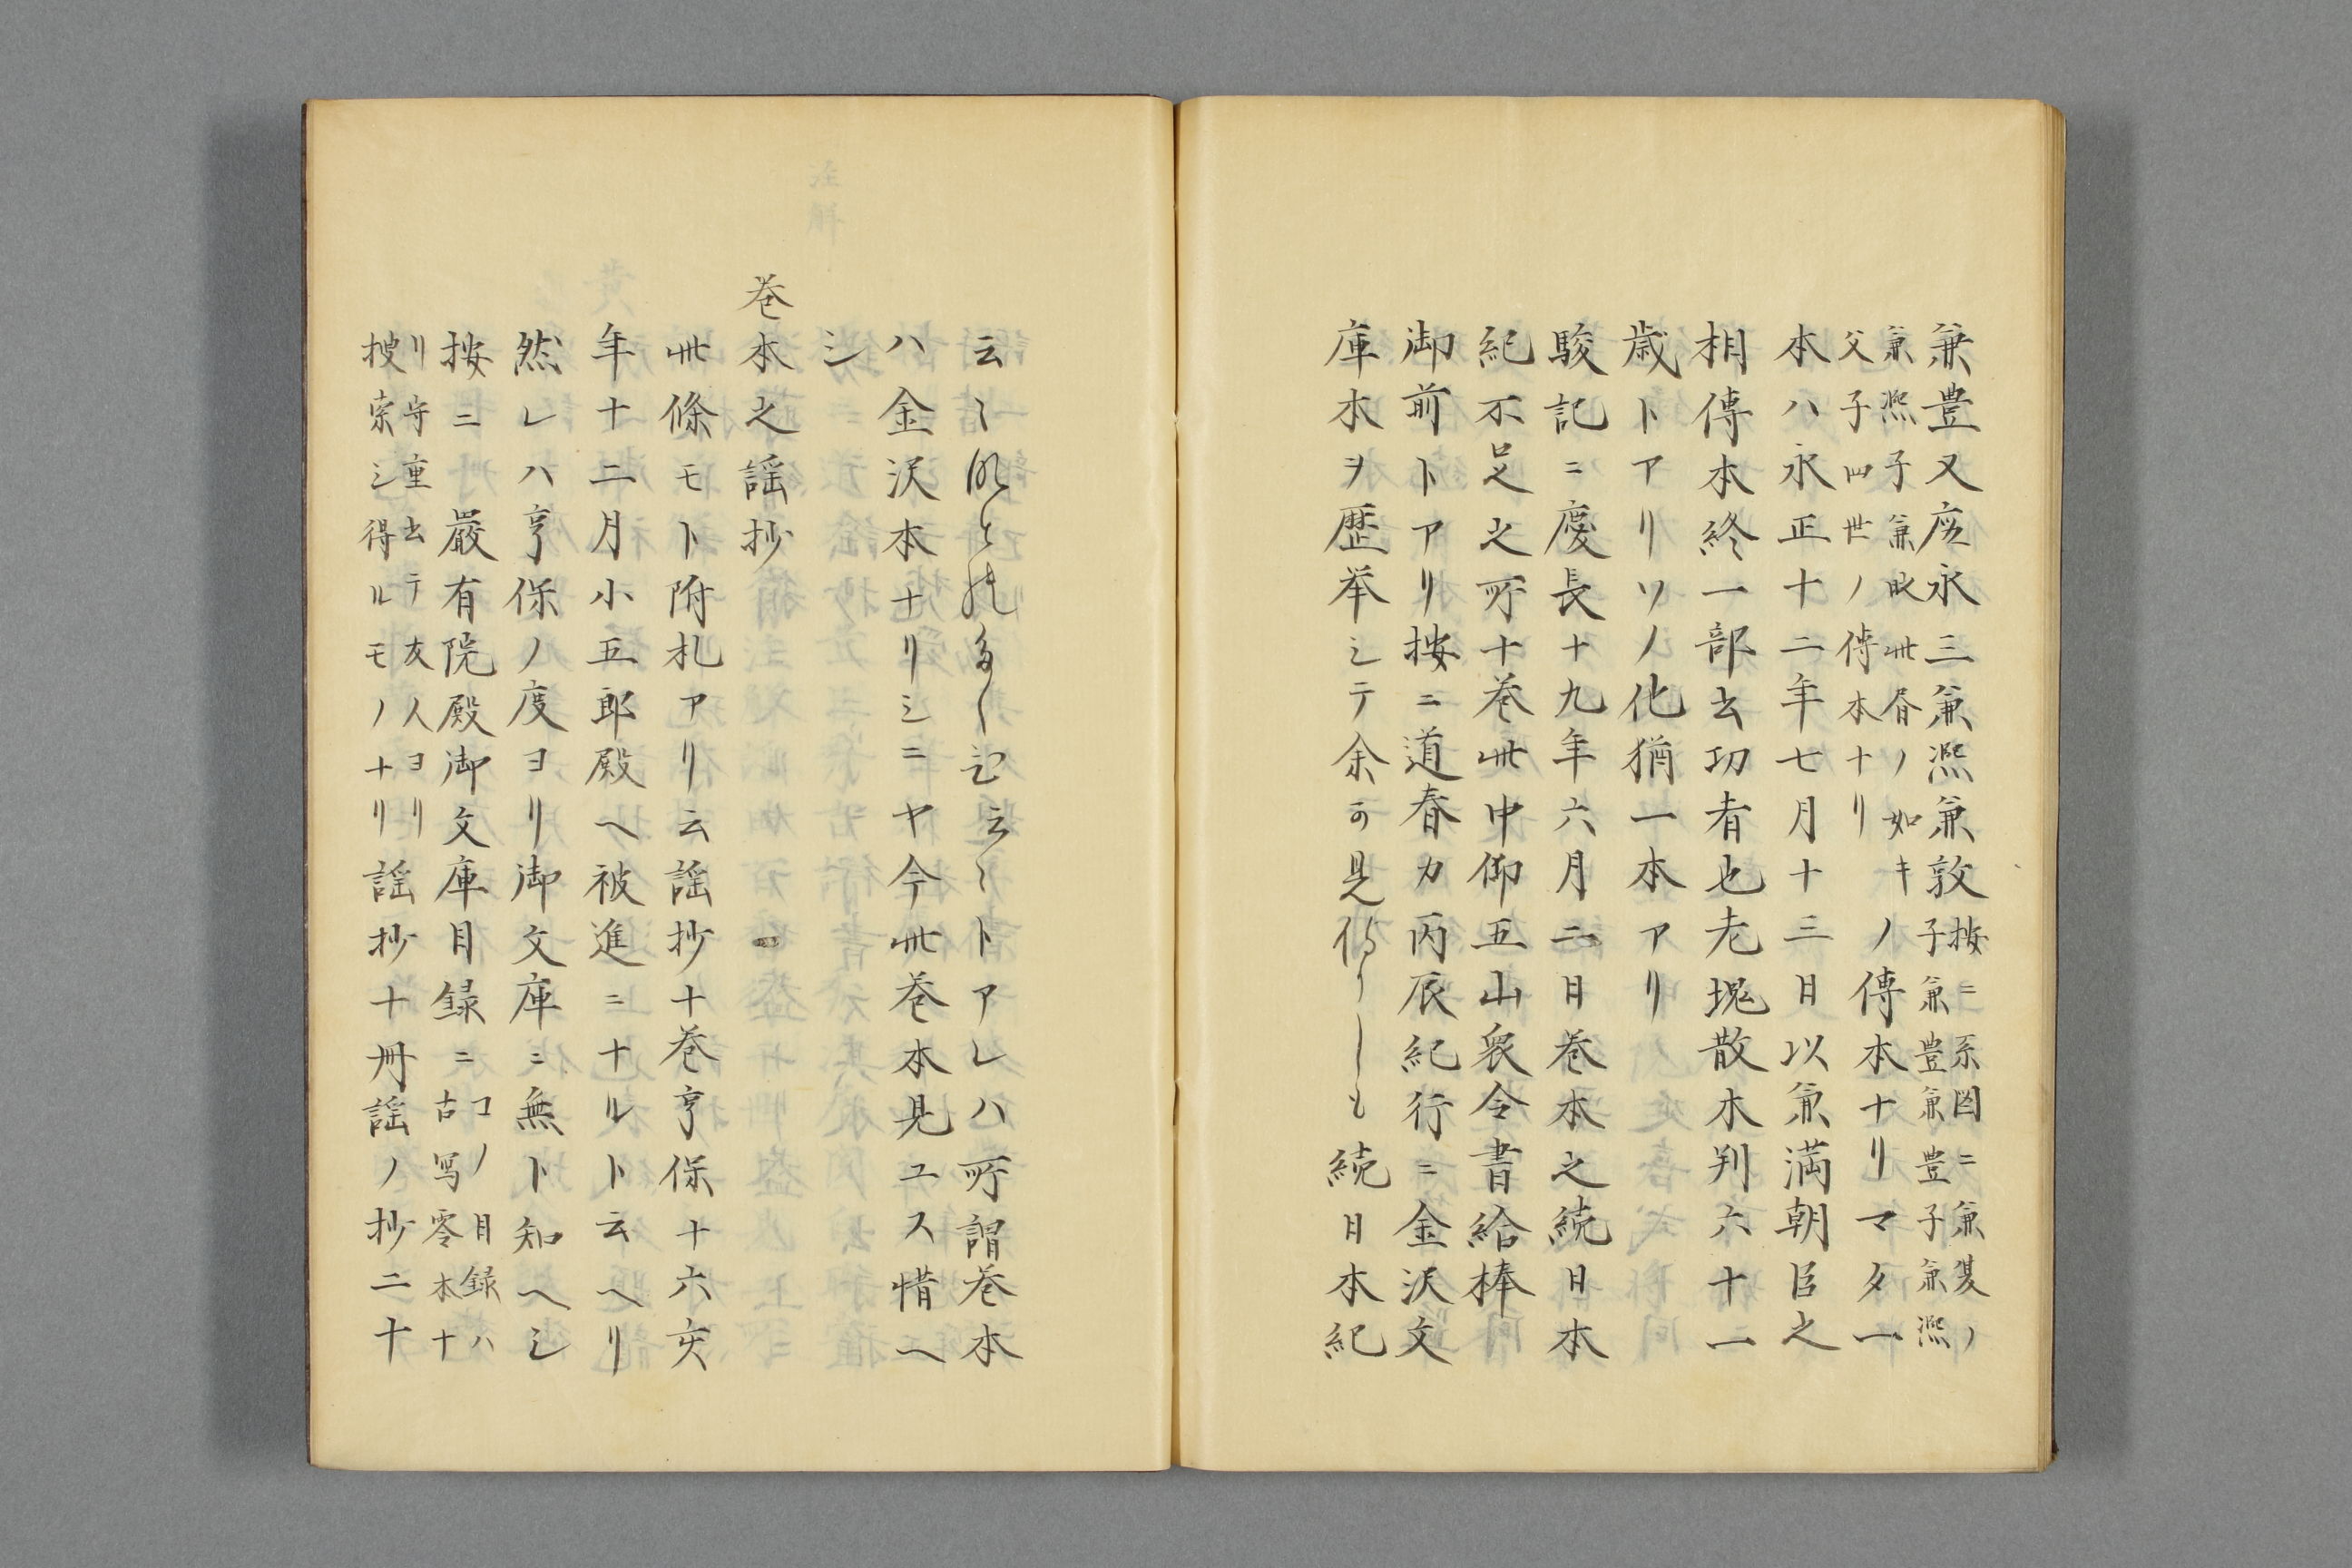 兼豊又応永三兼凞兼敦按ニ系図ニ兼夏ノ
子兼豊兼豊子兼凞
兼凞子兼敦此昏ノ如キ
父子四世ノ傳本ナリノ傳本ナリマタ一
本ハ永正十二年七月十三日以兼満朝臣之
相傳本終一部玄功者也老槐散木判六十一
歳トアリソノ化猶一本アリ
駿記ニ慶長十九年六月二日巻本之続日本
紀不足之所十巻此中仰五山衆令書給棒
御前トアリ按ニ道春カ丙辰紀行ニ金沢文
庫本ヲ歴挙シテ余可見侍りしも続日本紀
云〻トアレハ所謂巻本
ハ金沢本ナリシニヤ今此巻本見ユス惜ヘ
シ
巻本之謡抄
此條モト附札アリ云謡抄十巻亨保十六亥
年十二月小五郎殿ヘ被進ニナルト云ヘリ
然レハ亨保ノ度ヨリ御文庫ニ無ト知ヘシ
按ニ嚴有院殿御文庫目録ニコノ目録ハ
古写零本十
リ守重去テ友人ヨリ
捜索シ得ルモノナリ謡抄十冊謡ノ抄二十